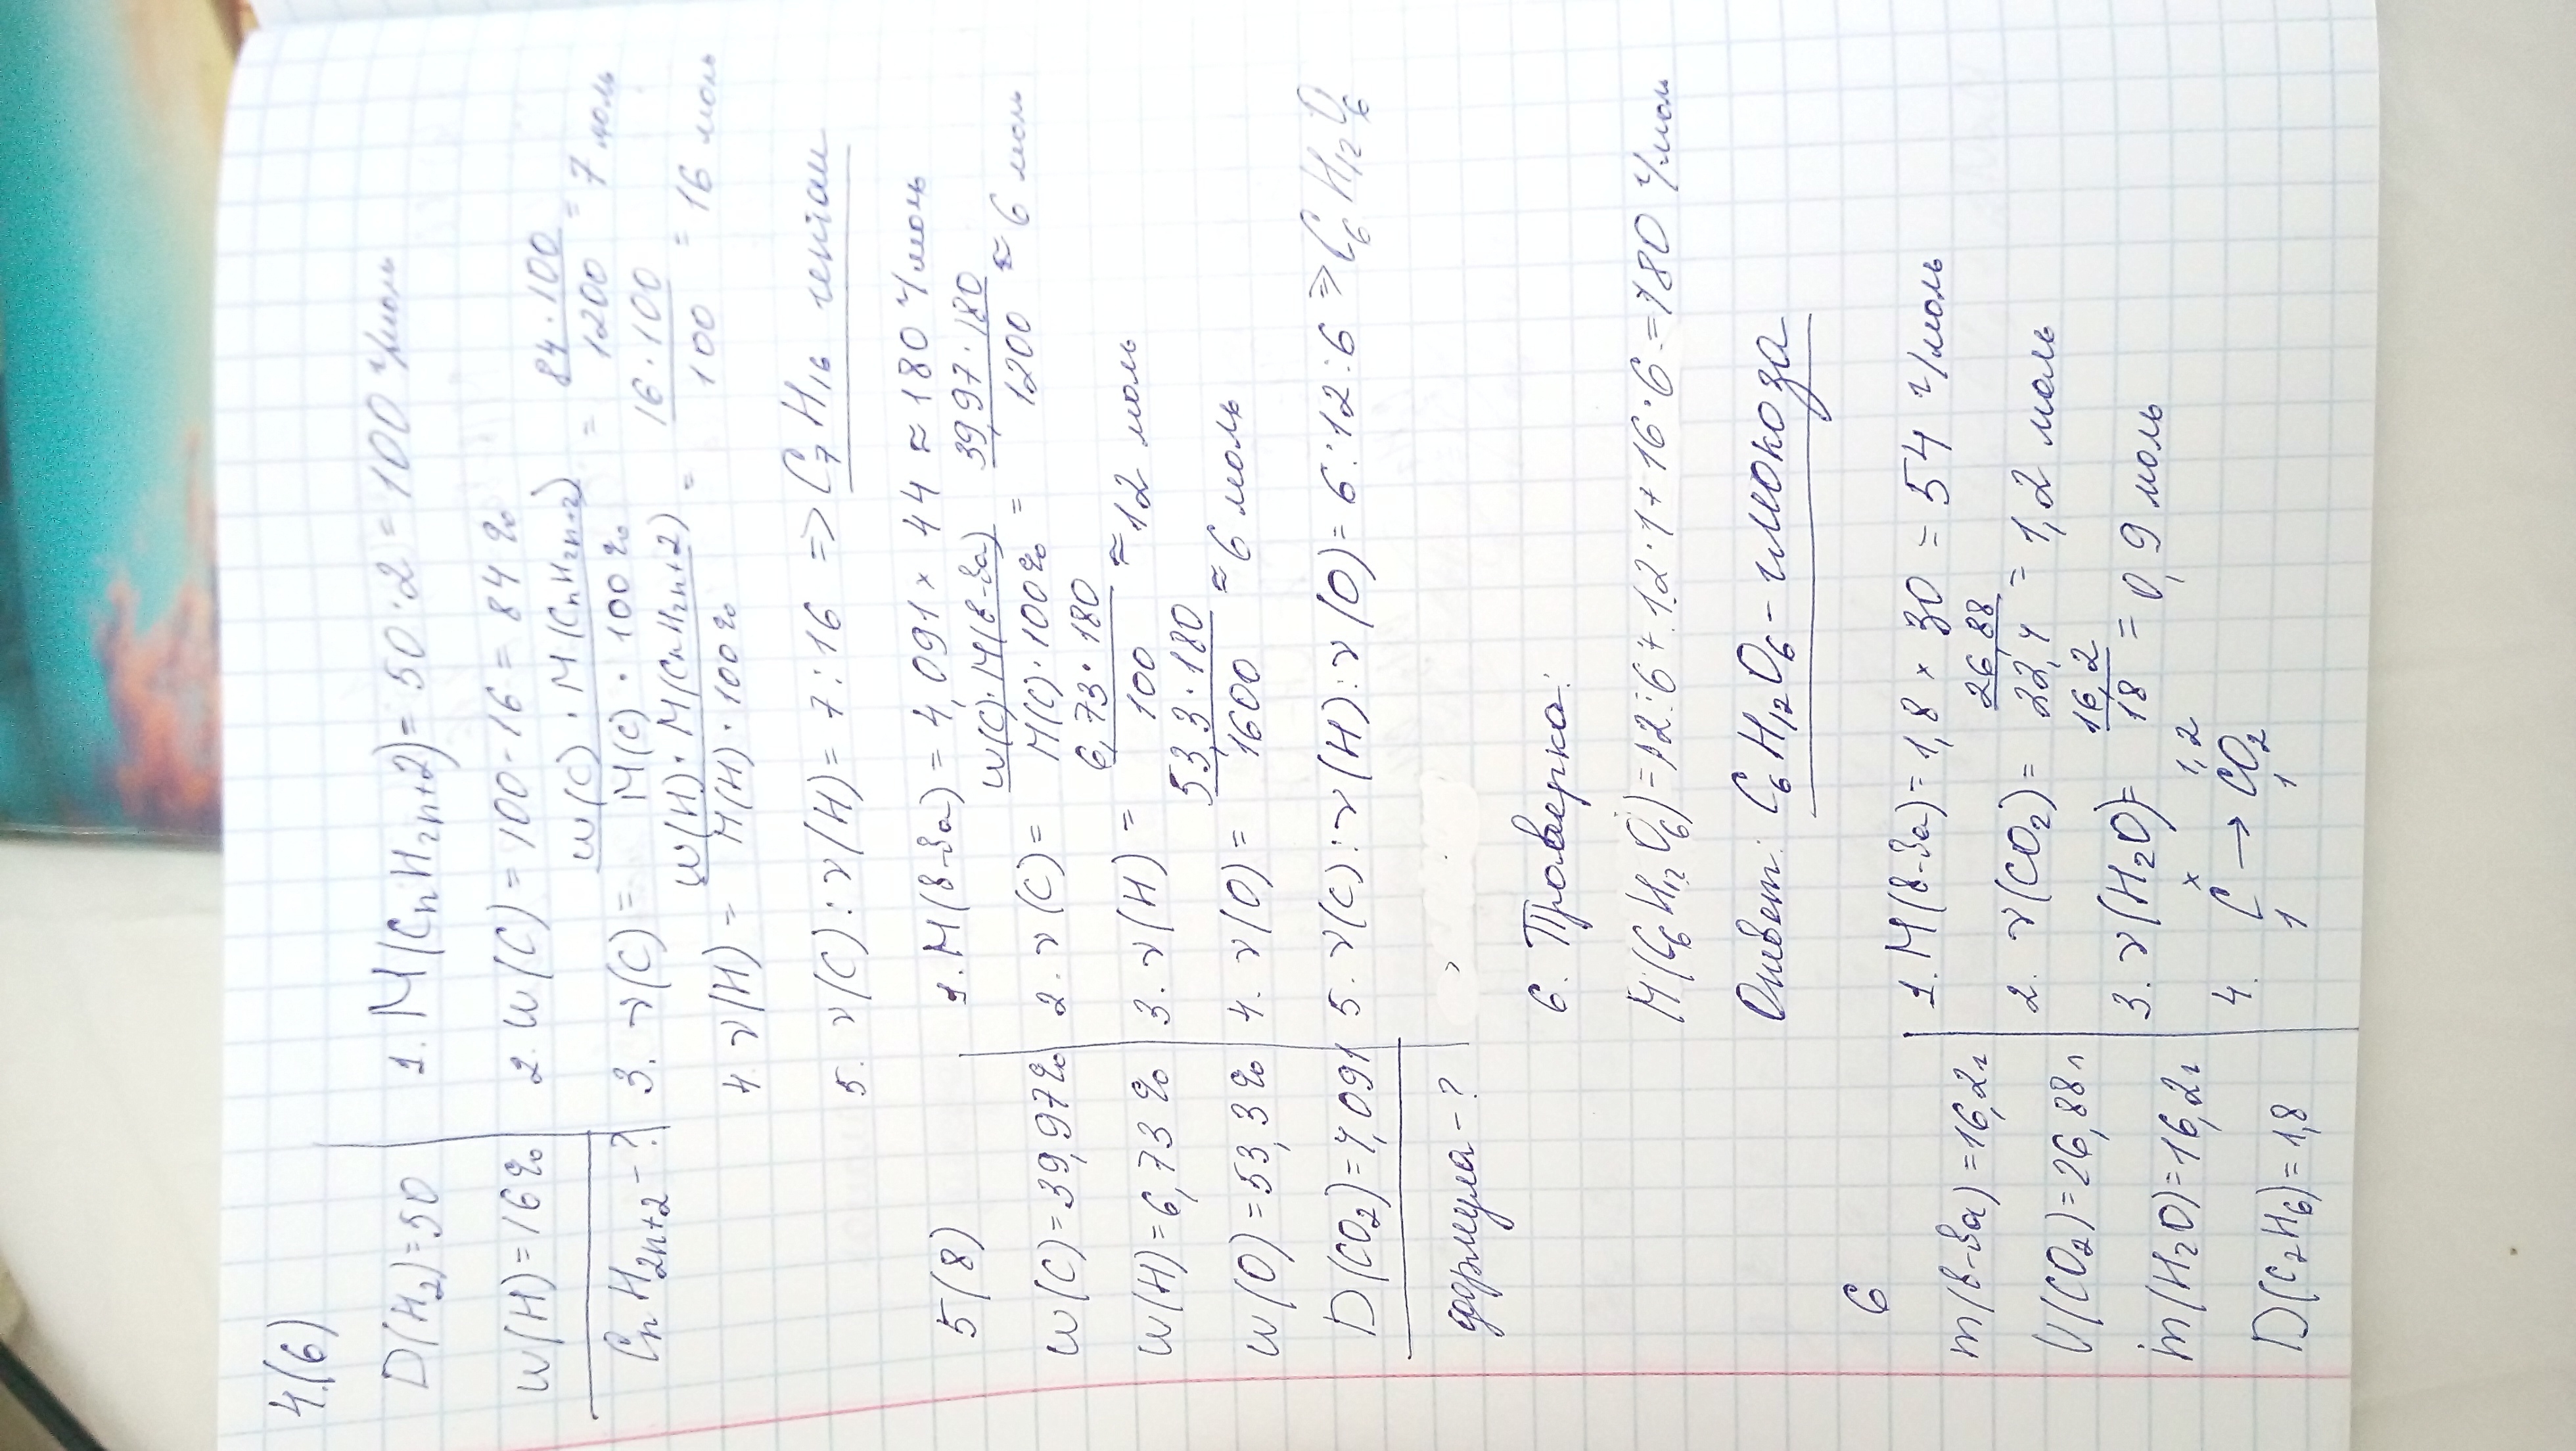 4.(6)
D(H₂)=50
w(H)=16%
CₙH₂ₙ₊₂-?
1. M(CₙH₂ₙ₊₂)=50·2=100 г/моль
2. w(C)=100-16=84%
3. ν(C)= w(C)·M(CₙH₂ₙ₊₂) / M(C)·100% = 84·100 / 1200 = 7 моль
4. ν(H)= w(H)·M(CₙH₂ₙ₊₂) / M(H)·100% = 16·100 / 100 = 16 моль
5. ν(C):ν(H)=7:16 => C₇H₁₆ гептан
5(8)
w(C)=39,97%
w(H)=6,73%
w(O)=53,3%
D(CO₂)=4,091
формула-?
1. M(в-ва)=4,091×44≈180 г/моль
2. ν(C)= w(C)·M(в-ва) / M(C)·100% = 39,97·180 / 1200 ≈ 6 моль
3. ν(H)= 6,73·180 / 100 ≈12 моль
4. ν(O)= 53,3·180 / 1600 ≈6 моль
5. ν(C):ν(H):ν(O)=6:12:6 => C₆H₁₂O₆
6. Проверка:
M(C₆H₁₂O₆)=12·6+12·1+16·6=180 г/мол
Ответ: C₆H₁₂O₆-глюкоза
6
m(в-ва)=16,2г
V(CO₂)=26,88л
m(H₂O)=16,2г
D(C₂H₆)=1,8
1. M(в-ва)=1,8×30=54 г/моль
2. ν(CO₂)= 26,88 / 22,4 =1,2 моль
3. ν(H₂O)= 16,2 / 18 = 0,9 моль
x 1,2
4. C → CO₂
1 1